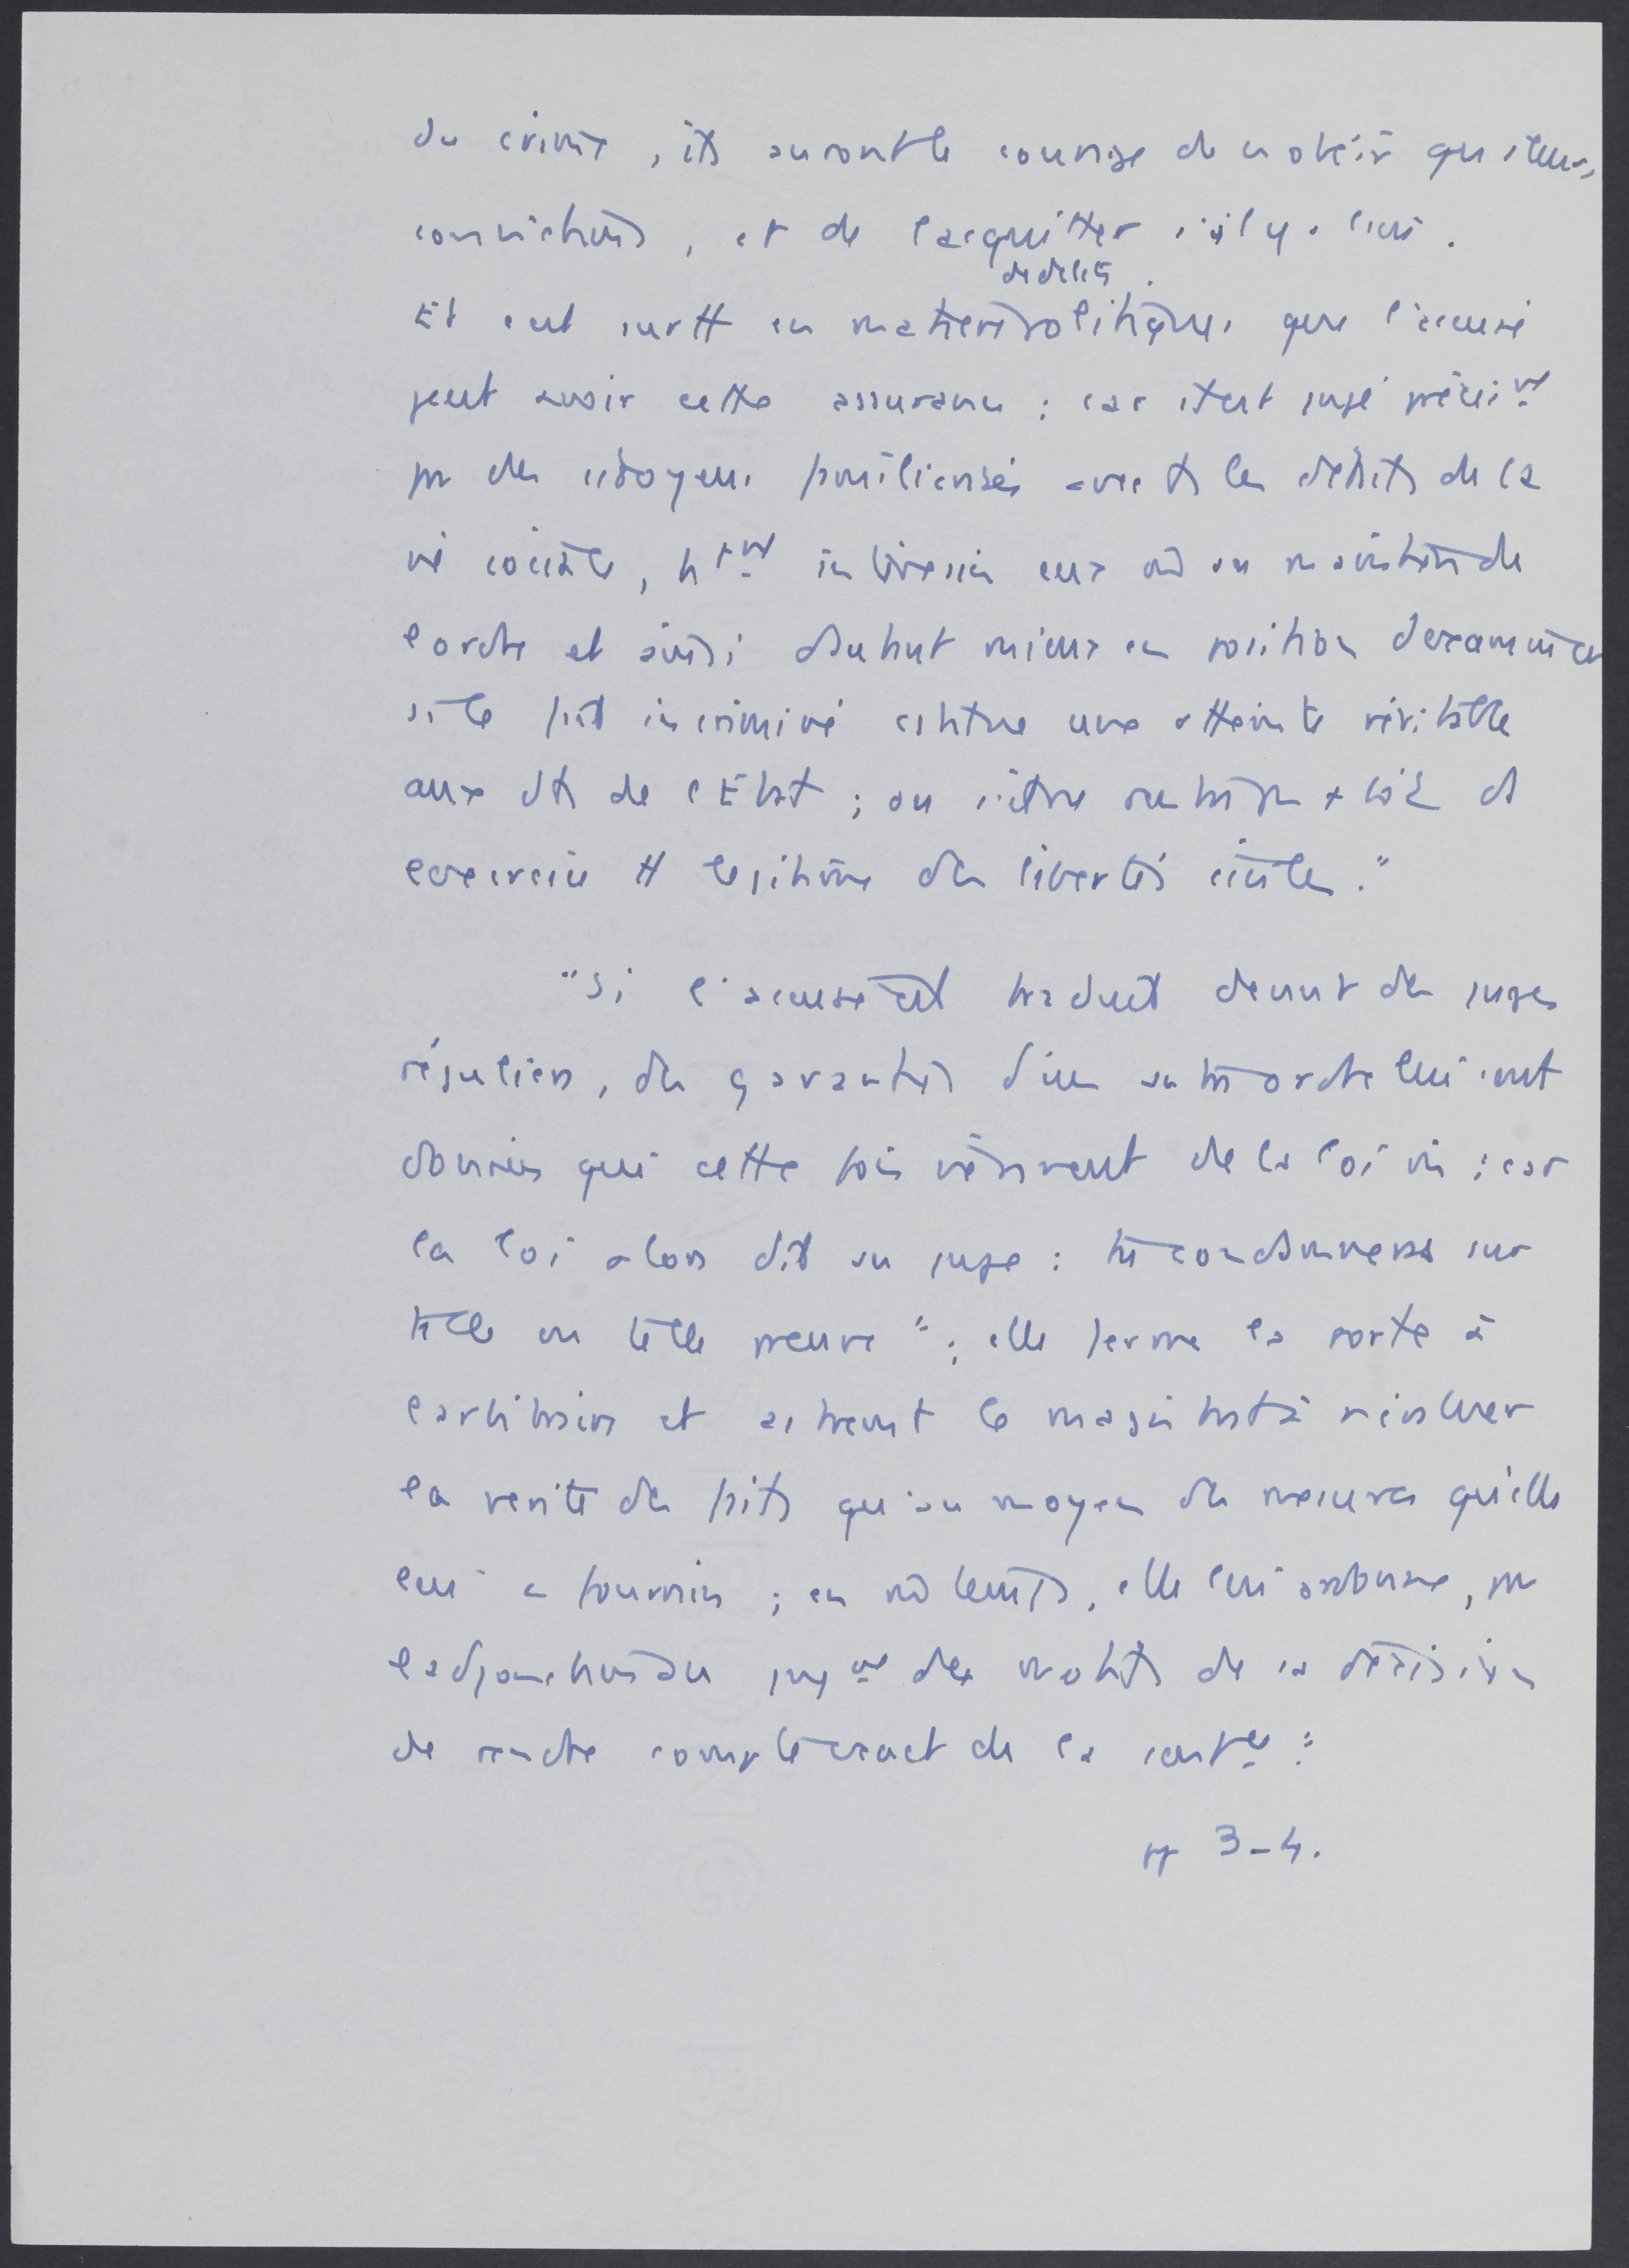 du crime, ils auront le courage de n obéir qu à leurs
convictions, et de l'acquitter s'il y a lieu.
de délits
Et c'est surtt en matière politique, que l'accusé
peut avoir cette assurance : car étant jugé précisemt
par des citoyens familiarisés avec ts les détails de la
vie sociale, htemt intéressés eux mêmes au maintien de
l'ordre et ainsi d'autant mieux en position d'examiner
si le fait incriminé constitue une atteinte véritable
aux dts de l'Etat ; ou
exercice tt légitime des libertés civiles."
"Si l'accusé est traduit devant des juges
réguliers, des garanties d'un autre ordre lui sont
données qui cette fois dérivent de la loi : car
la loi alors dit au juge : tu condamneras sur
telle ou telle preuve" ; elle ferme la porte à
l'arbitraire et astreint le magistrat à n'évaluer
la vérité des faits qu'au moyen des mesures qu'elle
lui a fournies ; en même temps, elle lui ordonne, par
l'adjonction au jugemt des motifs de sa décision
de rendre compte exact de sa
pp 3-4.